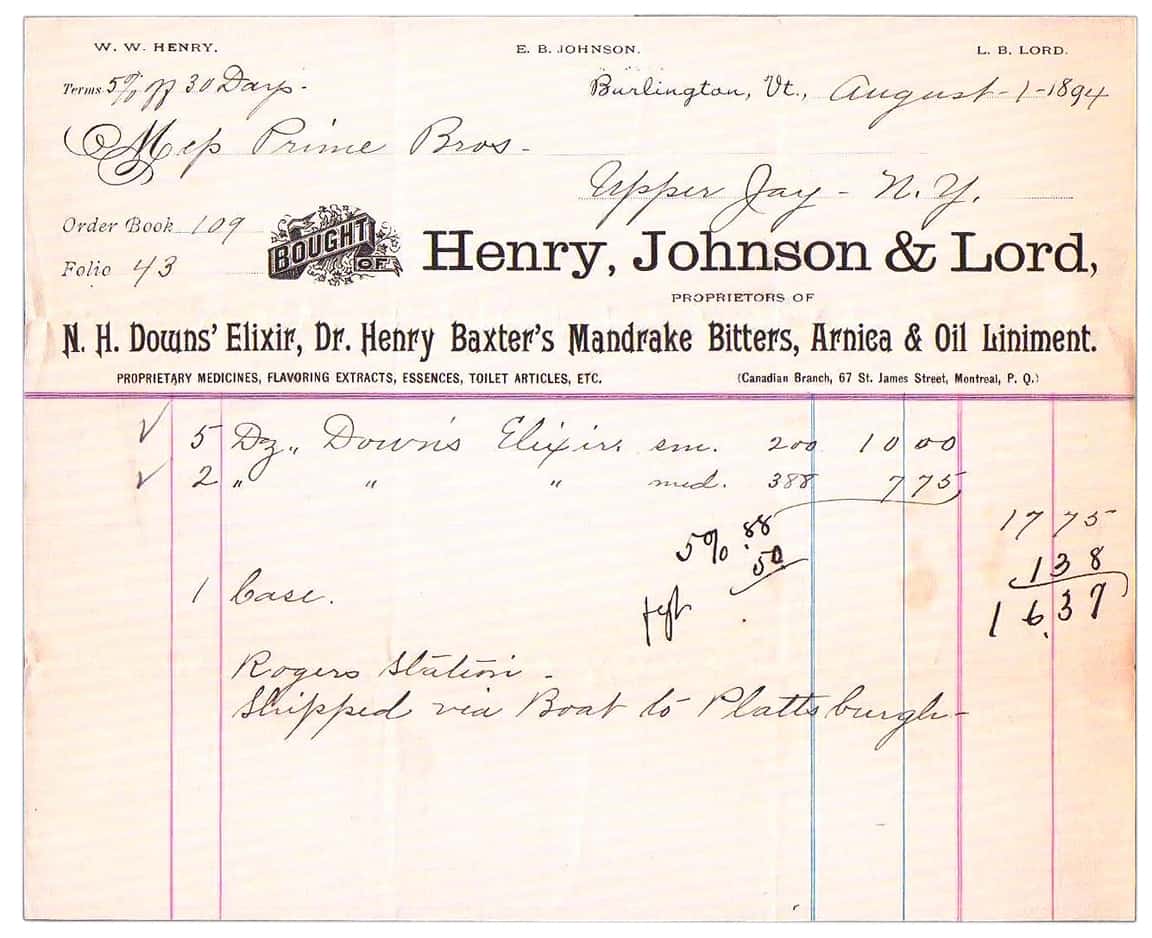 W. W. HENRY. E. B. JOHNSON. L. B. LORD.
Terms 5% off 30 Days. Burlington, Vt., August - 1 - 1894
Mess Prime Bros -
Upper Jay - N.Y.
Order Book 109
Folio 43
BOUGHT OF Henry, Johnson & Lord,
PROPRIETORS OF
N. H. Downs' Elixir, Dr. Henry Baxter's Mandrake Bitters, Arnica & Oil Liniment.
PROPRIETARY MEDICINES, FLAVORING EXTRACTS, ESSENCES, TOILET ARTICLES, ETC. (Canadian Branch, 67 St. James Street, Montreal, P. Q.)
5 Dz „ Down's Elixir. sm. 200 10 00
2 „ „ „ med. 388 7 75
17 75
5% .88
.50 1 38
frgt 16.37
1 Case.
Rogers Station -
Shipped via Boat to Plattsburgh -